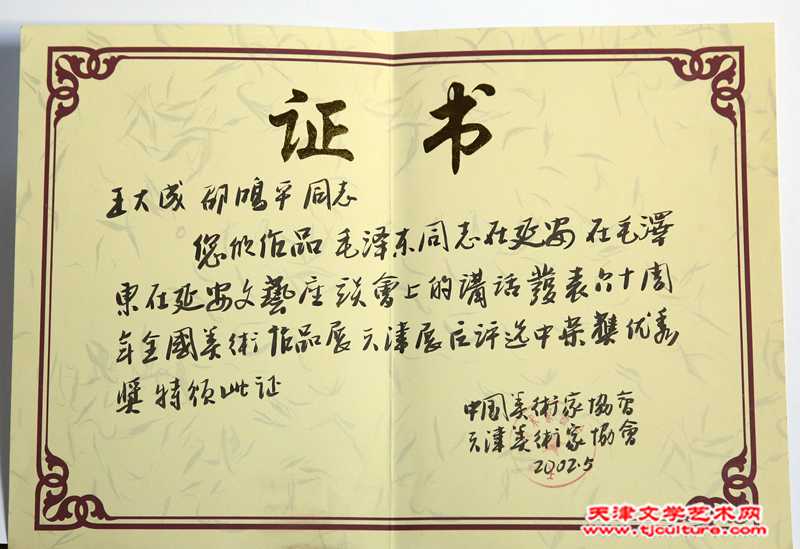 证书
王大成 邵鸣平同志
您的作品 毛泽东同志在延安 在毛澤
東在延安文藝座談會上的講話發表六十周
年全國美術作品展天津展区评选中荣獲优秀
獎 特颁此证
中国美術家协会
天津美術家协會
2002.5
天津文学艺术网
www.tjculture.com